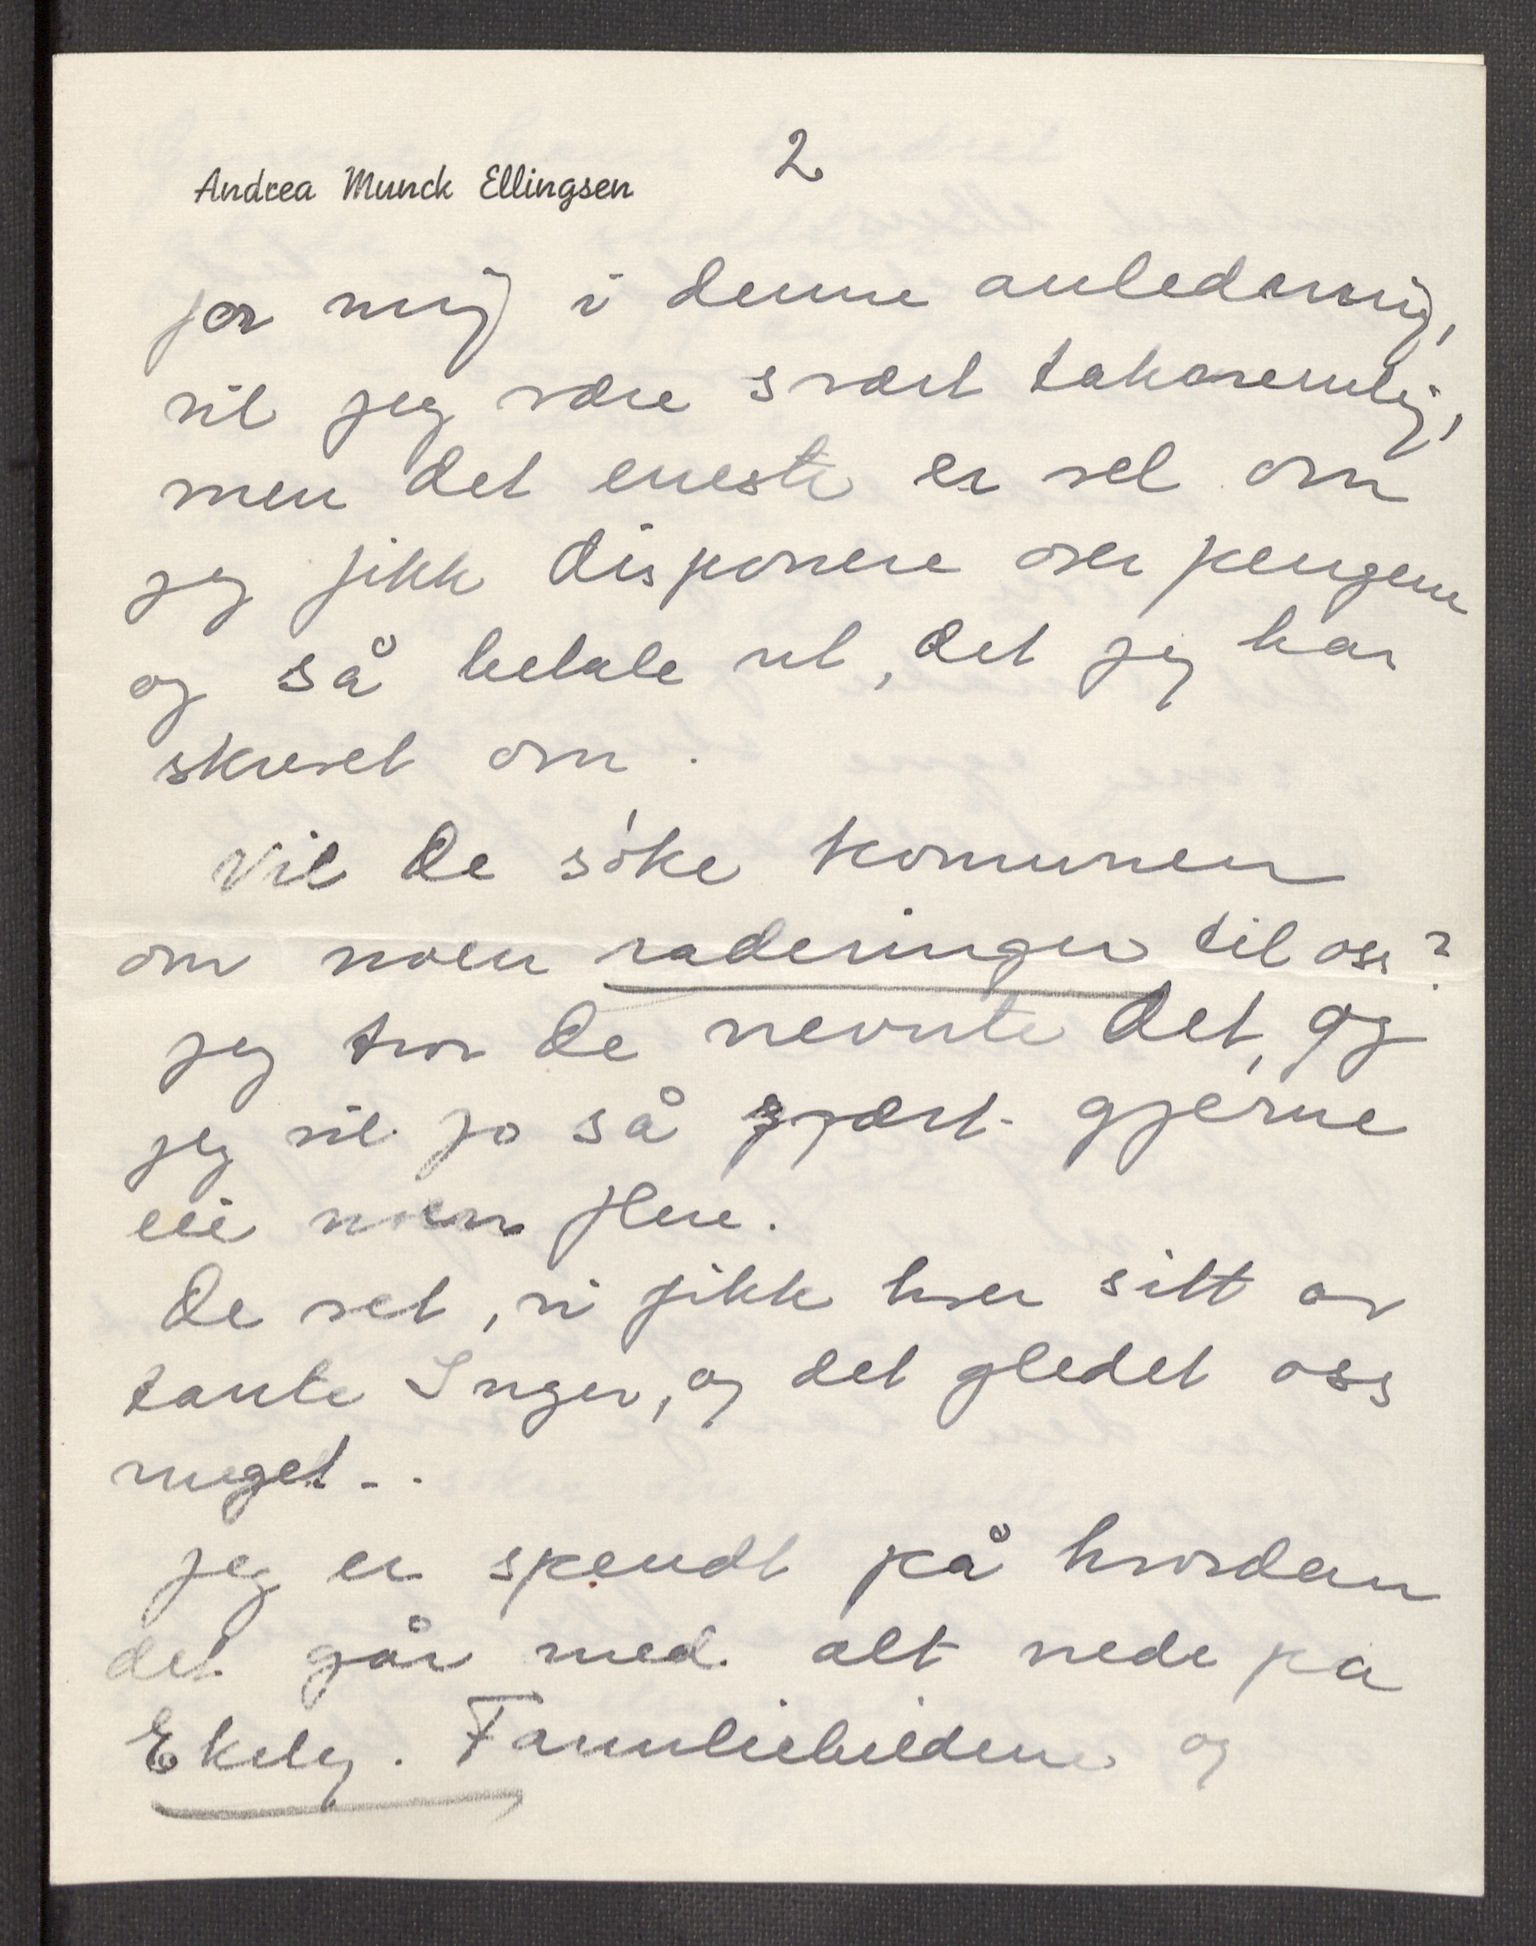 2
Andrea Munck Ellingsen
for mig i denne anledning,
vil jeg være svært taknemlig,
men det eneste er vel om
jeg fikk disponere over pengene
og så betale ut, det jeg har
skrevet om.
Vil De søke kommunen
om noen raderinger til oss?
jeg tror De nevnte det, og
jeg vil jo så svært gjerne
eie noen flere.
De vet, vi fikk hver sitt av
tante Inger, og det gledet oss
meget - .
jeg er spendt på hvordan
det går med alt nede på
Ekely. Familiebildene og